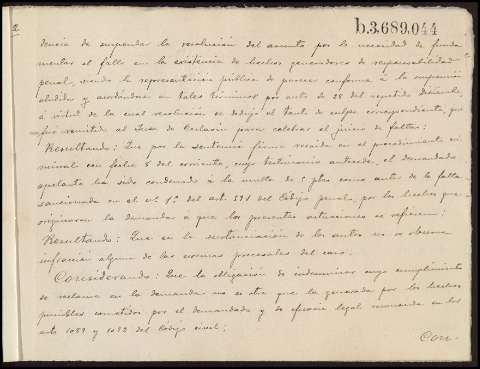 2
b.3.689,044
dencia de suspenda la resolución del asunto por la necesidad de funda-
mentar el fallo en la existencia de hechos generadores de responsabilidad
penal, siendo la representación pública de parecer conforme á la suspensión
aludida y acordándose en tales términos por auto de 28 del repetido Diciembre,
á virtud de la cual resolución se dedujo el tanto de culpa correspondiente, que
fué remitido al Juez de para celebrar el juicio de faltas:
Resultando: Que por la sentencia firme recaida en el procedimiento cri-
minal con fecha 5 del corriente, cuyo testimonio antecede, el demandado
apelante ha sido condenado á la multa de 5 ptas como autor de la falta
sancionada en el nº 1º del art 591 del Código penal, por los hechos que
originaron la demanda á que los presentes actuaciones se refieren:
Resultando: Que en la sustanciación de los autos no se observa
infracción alguna de las normas procesales del caso.
Considerando: Que la obligación de indemnizar cuyo cumplimiento
se reclama en la demanda no es otra que la generada por los hechos
punibles cometidos por el demandado y de eficacia legal en los
arts 1089 y 1092 del Código civil;
Con-